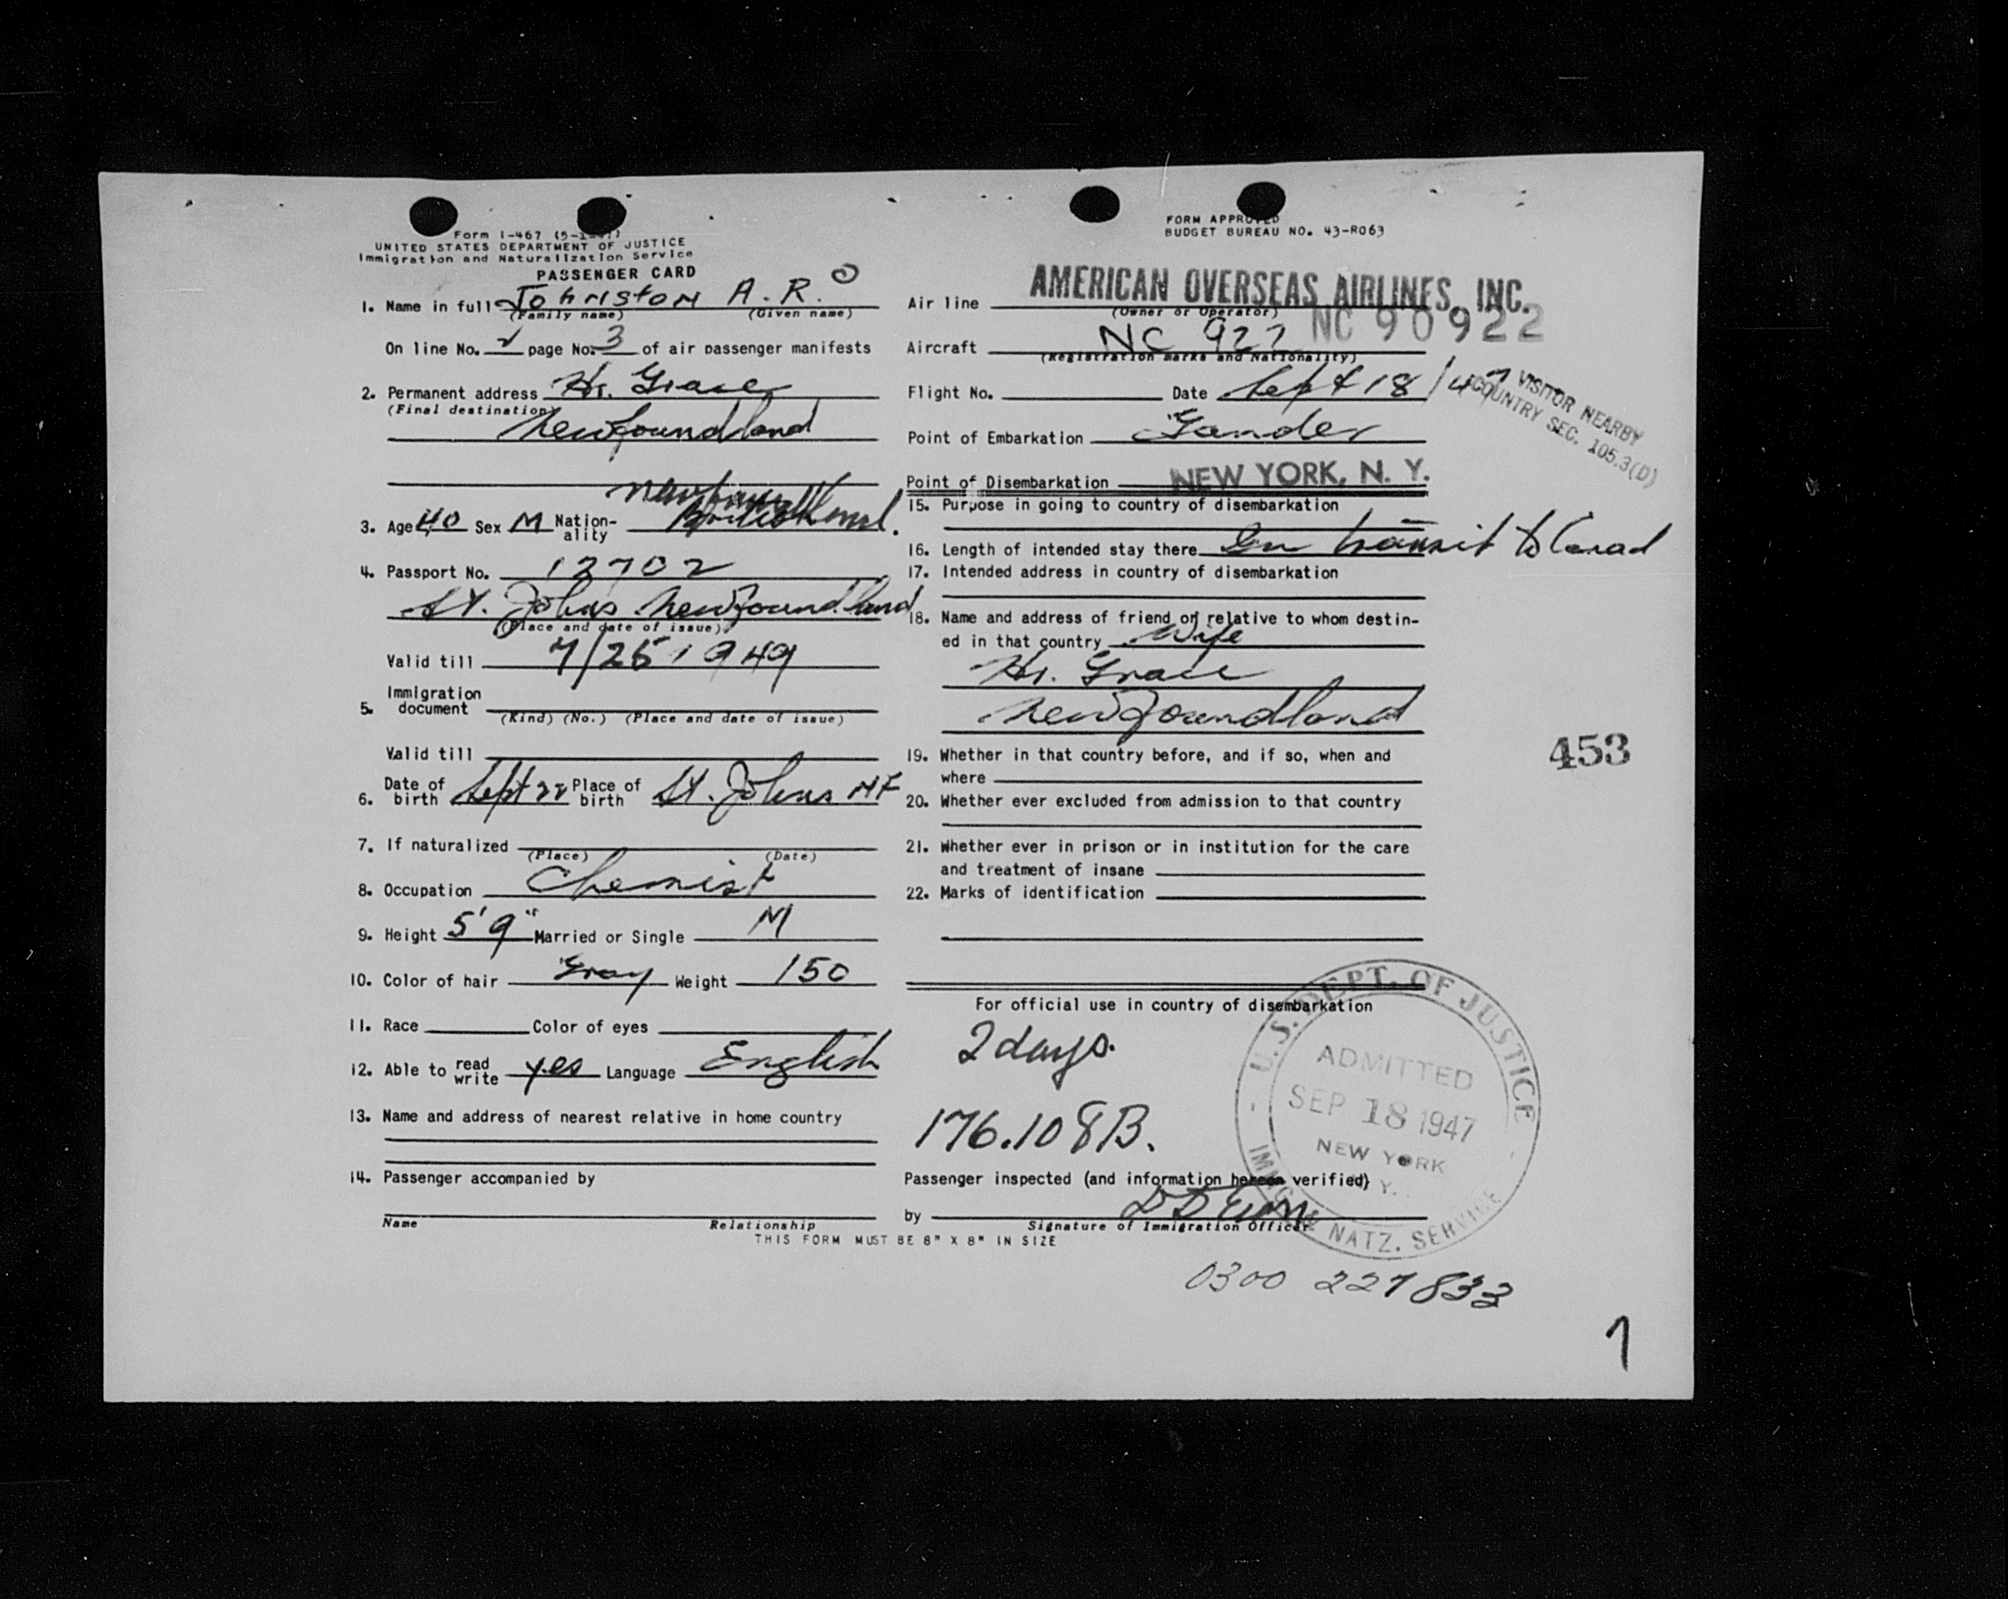 Form I-467
UNITED STATES DEPARTMENT OF JUSTICE
Immigration and Naturalization Service
PASSENGER CARD
1. Name in full Johnston A. R.
(Family name) (Given name)
On line No. page No. 3 of air passenger manifests
2. Permanent address Hr. Grace
(Final destination)
Newfoundland
3. Age 40 Sex M Nation-ality
4. Passport No. 12702
St. Johns Newfoundland
(Place and date of issue)
Valid till 7/25 1949
5. Immigration document
(Kind) (No.) (Place and date of issue)
Valid till
6. Date of birth Sept 22 Place of birth St. Johns NF
7. If naturalized
(Place) (Date)
8. Occupation Chemist
9. Height 5'9" Married or Single M
10. Color of hair Gray Weight 150
11. Race Color of eyes
12. Able to read write yes Language English
13. Name and address of nearest relative in home country
14. Passenger accompanied by
Name Relationship
FORM APPROVED
BUDGET BUREAU NO. 43-R063
Air line AMERICAN OVERSEAS AIRLINES, INC.
(Owner or Operator)
Aircraft NC 922 NC 90922
(Registration marks and Nationality)
Flight No. Date Sept 18/47
VISITOR NEARBY
COUNTRY SEC. 105.3(D)
Point of Embarkation Gander
Point of Disembarkation NEW YORK, N. Y.
15. Purpose in going to country of disembarkation
16. Length of intended stay there In transit to Canad
17. Intended address in country of disembarkation
18. Name and address of friend or relative to whom destin-
ed in that country Wife
Hr. Grace
Newfoundland
19. Whether in that country before, and if so, when and
where
453
20. Whether ever excluded from admission to that country
21. Whether ever in prison or in institution for the care
and treatment of insane
22. Marks of identification
For official use in country of disembarkation
2 days.
176.108B.
U. S. DEPT. OF JUSTICE
ADMITTED
SEP 18 1947
NEW YORK
Y.
NATZ. SERVICE
Passenger inspected (and information hereon verified)
by
Signature of Immigration Officer
THIS FORM MUST BE 8" X 8" IN SIZE
0300 227833
7